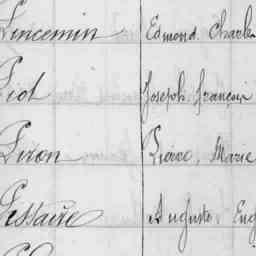 Pincemin Edmond Charle
Piot Joseph françoi
Piron Pierre Marie
Pissaire Auguste Eug